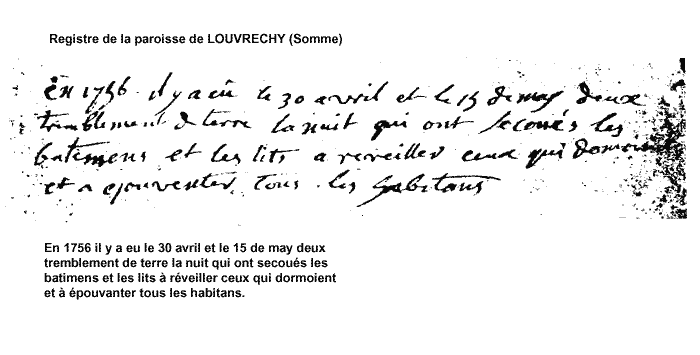 Registre de la paroisse de LOUVRECHY (Somme)
En 1756 il y a eû le 30 avril et le 15 de may deux
tremblement de terre la nuit qui ont secoués les
batimens et les lits a reveiller ceux qui dormoient
et a epouventer tous les habitans
En 1756 il y a eu le 30 avril et le 15 de may deux
tremblement de terre la nuit qui ont secoués les
batimens et les lits à réveiller ceux qui dormoient
et à épouvanter tous les habitans.